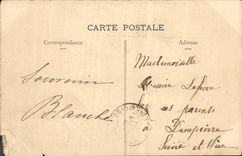 CARTE POSTALE
Correspondance
Adresse
Souvenir
Blanche
Mademoiselle
Lefort
ses parents
à Dampierre
Seine et Oise